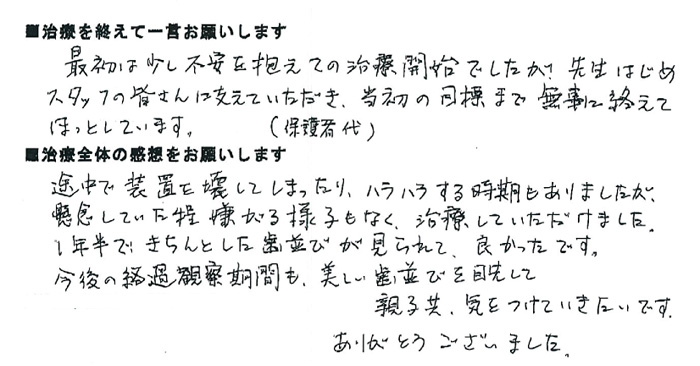 ■治療を終えて一言お願いします
最初は少し不安を抱えての治療開始でしたが、先生はじめ
スタッフの皆さんに支えていただき、当初の目標まで無事に終えて
ほっとしています。 (保護者代)
■治療全体の感想をお願いします
途中で装置を壊してしまったり、ハラハラする時期もありましたが、
懸念していた程嫌がる様子もなく、治療していただけました。
1年半で、きちんとした歯並びが見られて、良かったです。
今後の経過観察期間も、美しい歯並びを目先して
親子共、気をつけていきたいです。
ありがとうございました。